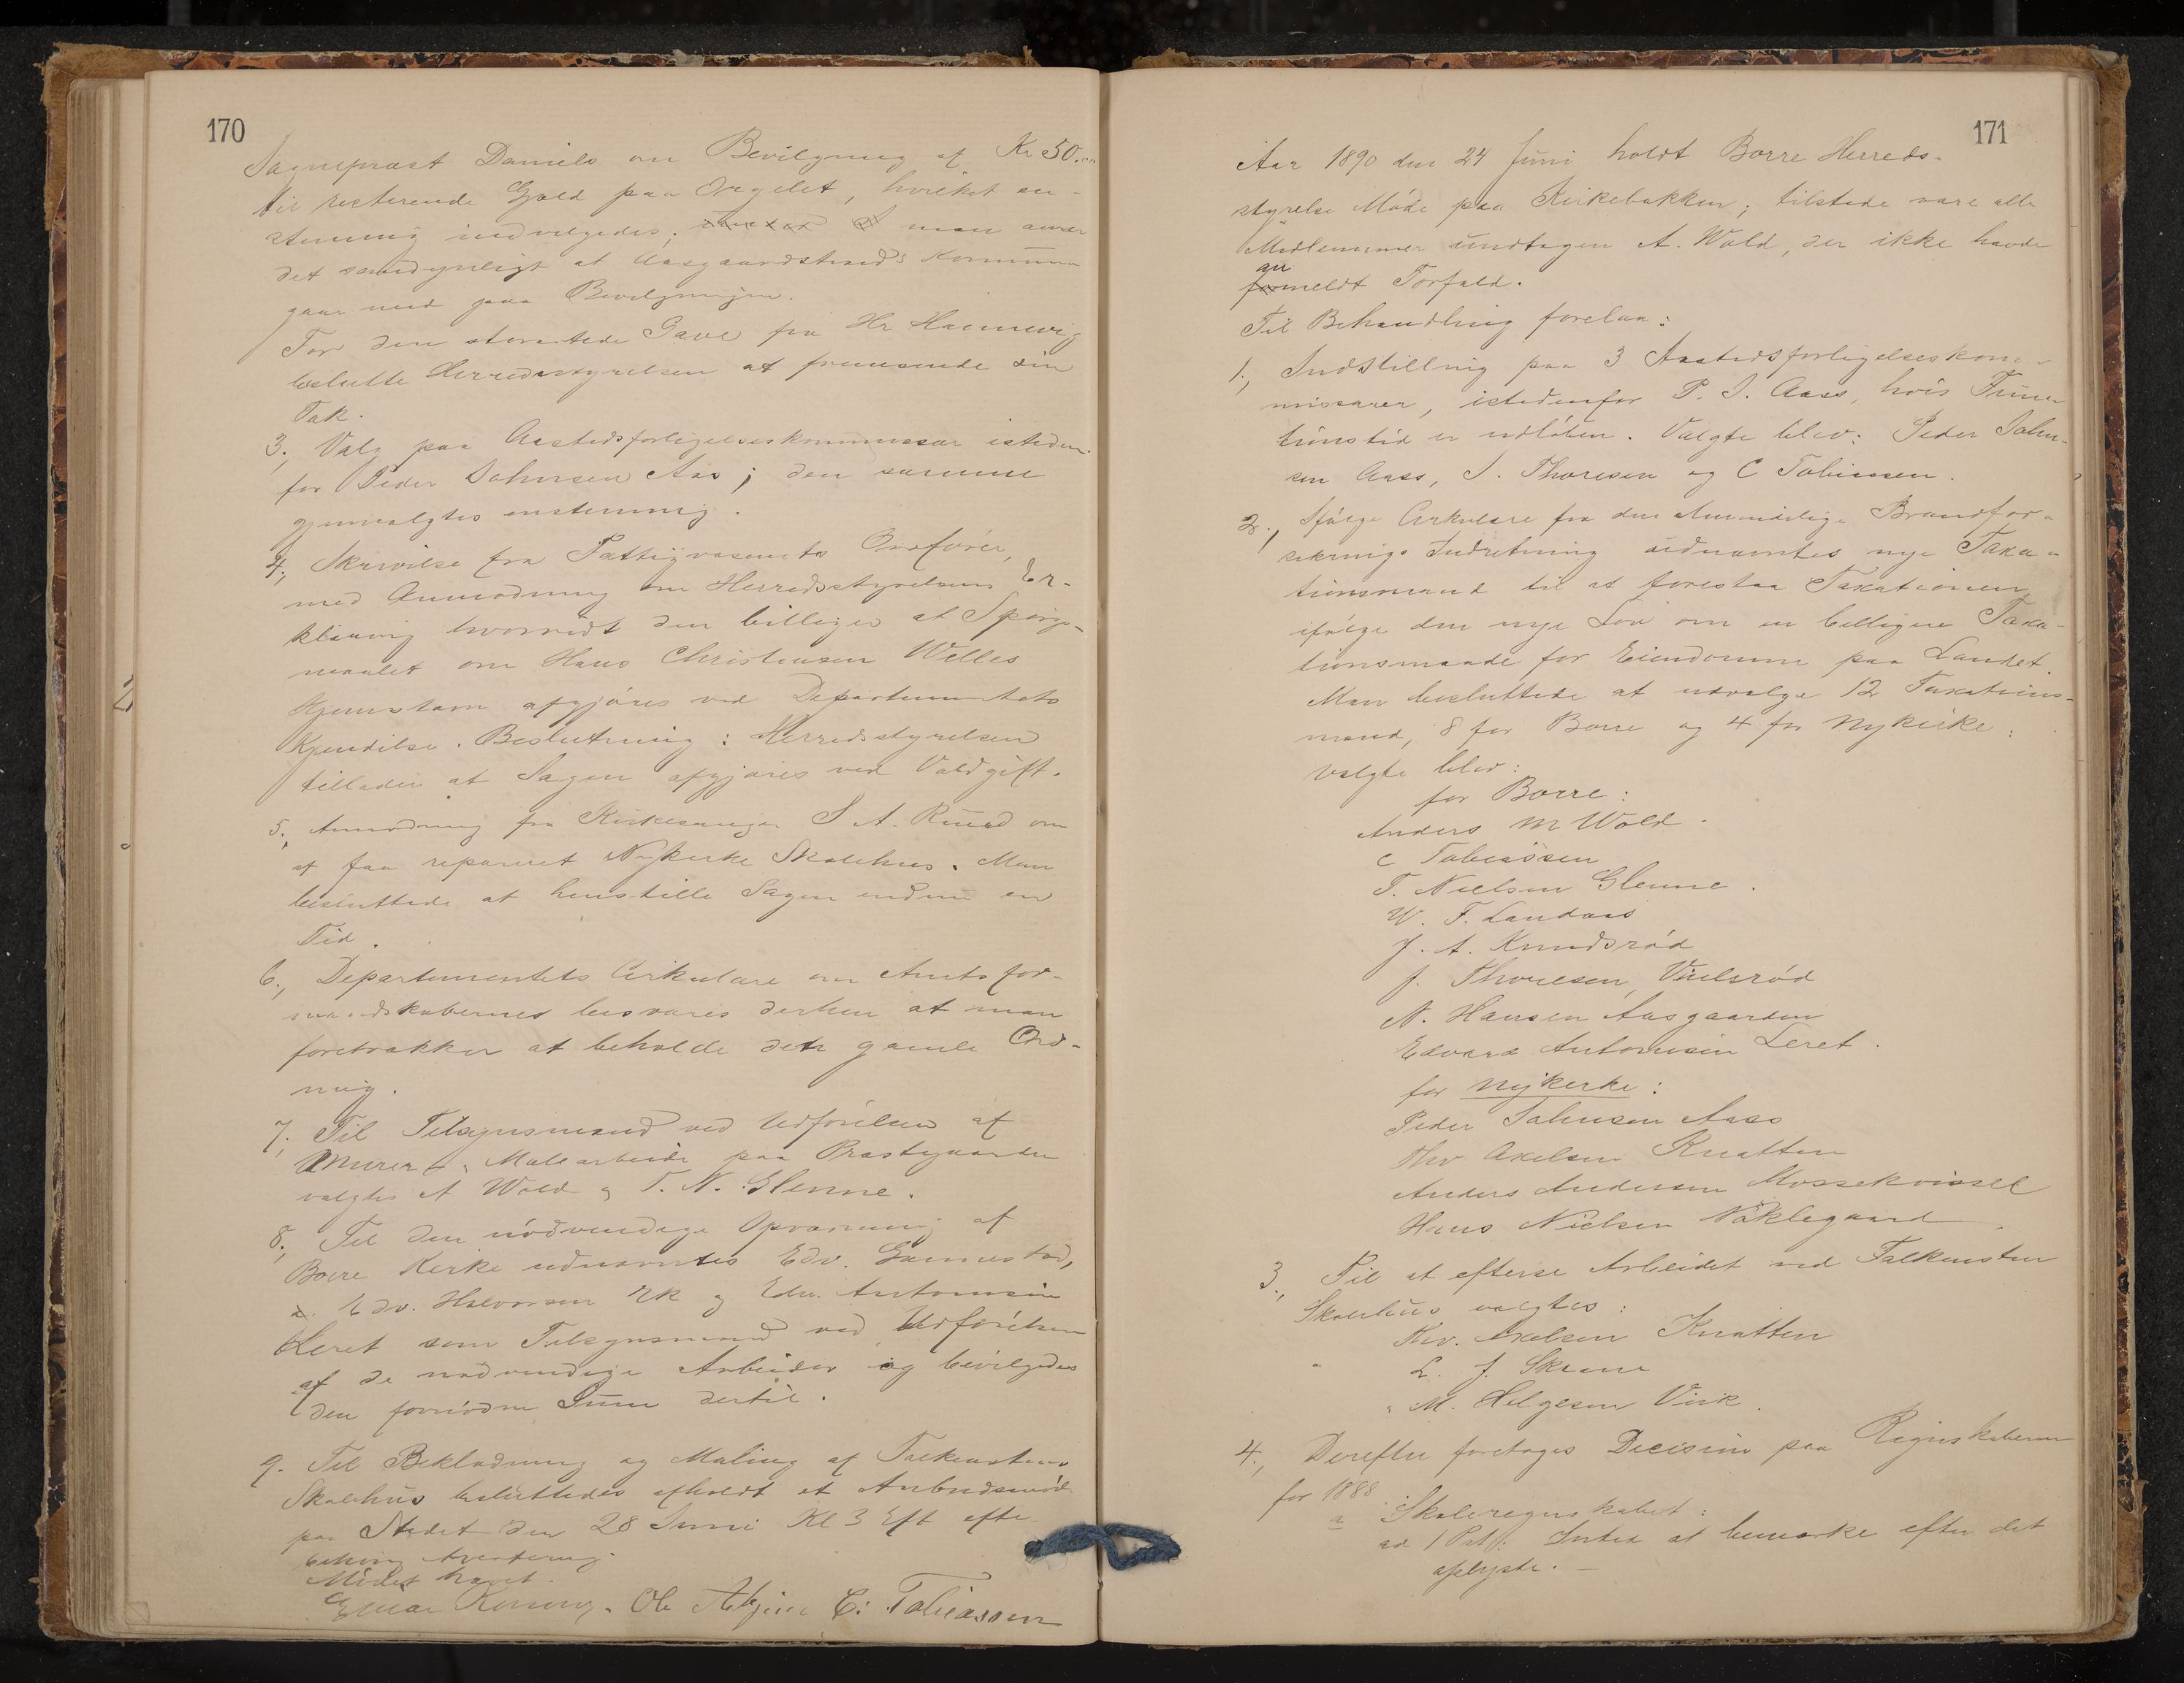 170
Sognepræst Daniels om Bevilgning af Kr 50.00
til resterende Gjæld paa Orgelet, hvilket en-
stemmig indvilgedes; man anser
det sandsynligt at Aasgaardstrands Kommune
gaar med paa Bevilgningen.
For den storartede Gave fra Hr Hannevig
beslutte Herredsstyrelsen at fremsende sin
Tak.
3., Valg paa Aastedsforligelseskommissær isteden-
for Peder Johnsen Aas; den samme
gjenvalgtes enstemmig.
4., Skrivelse fra Fattigvæsenets Ordfører,
med Anmodning om Herredsstyrelsens Er-
klæring hvorvidt den billiger at Spørgs-
maalet om Hans Christensen Welles
Hjemstavn afgjøres ved Departementets
Kjendelse. Beslutning: Herredsstyrelsen
tillader at Sagen afgjøres ved Voldgift.
5., Anmodning fra Kirkesanger S A. Ruud om
at faa repareret Nykirke Skolehus. Man
besluttede at henstille Sagen endnu en
Tid.
6., Departementets Cirkulære om Amtsfor-
mandskabernes besvares derhen at man
foretrækker at beholde den gamle Ord-
ning.
7., Til Tilsynsmænd ved Udførelsen af
Murer & Malearbeide paa Præstegaarden
valgtes A Wold og T. N. Glenne.
8., Til den nødvendige Opvarming af
Borre Kirke udnævntes Edv. Gannestad,
Edv. Halvorsen Ek og Edv. Antonsen
Leret som Tilsynsmænd ved Udførelsen
af de nødvendige Arbeider og bevilgedes
den fornødne Sum dertil.
9. Til Beklædning og Maling af Falkenstens
Skolehus besluttedes afholdt et Anbudsmøde
paa Stedet den 28 Juni Kl 3 Eft efter
behørig Avertering.
Mødet hævet.
Ole C. Tobiassen
171
Aar 1890 den 24 Juni holdt Borre Herreds-
styrelse Møde paa Kirkebakken; tilstede vare alle
Medlemmer undtagen A. Wold, der ikke havde
an
formeldt Forfald.
Til Behandling forelaa:
1., Indstilling paa 3 Aastedsforligelseskom-
missærer, istedenfor P. J. Aass, hvis Funk-
tionstid er udløben. Valgte blev: Peder John-
sen Aass, J. Thoresen og C Tobiassen.
2., Ifølge Cirkulære fra den almindelige Brandfor-
sikrings Indretning udnævntes nye Taxa-
tionsmænd til at forestaa Taxationen
ifølge den nye Lov om en billigere Taxa-
tionsmaade for Eiendomme paa Landet.
Man besluttede at udvælge 12 Taxations-
mænd, 8 for Borre og 4 for Nykirke:
Valgte blev:
for Borre:
Anders M Wold.
C Tobiassen
T. Nielsen Glenne.
W. F. Landaas
J. A. Knudsrød
J. Thoresen, Vielsrød
N. Hansen Aasgaarden
Edvard Antonsen Leret.
for Nykirke:
Peder Johnsen Aass
Thv Axelsen Knatten
Anders Andersen Mossekvissel
Hans Nielsen Nøklegaard.
3., Til at efterse Arbeidet ved Falkensten
Skolehus valgtes:
Thv. Axelsen Knatten
L. J. Skrane
" M. Helgesen Viik.
4., Derefter foretoges Decision paa Regnskaberne
for 1888.
a Skoleregnskabet:
ad 1 Pst: Intet at bemærke efter det
oplyste. -